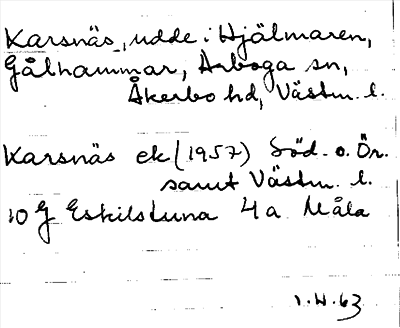 Karsnäs, udde i Hjälmaren,
Gålhammar, Arboga sn,
Åkerbo hd, Västm. l.
Karsnäs ek (1957) Söd. o. Ör.
samt Västm. l.
10 G Eskilstuna 4 a Måla
1.4.63